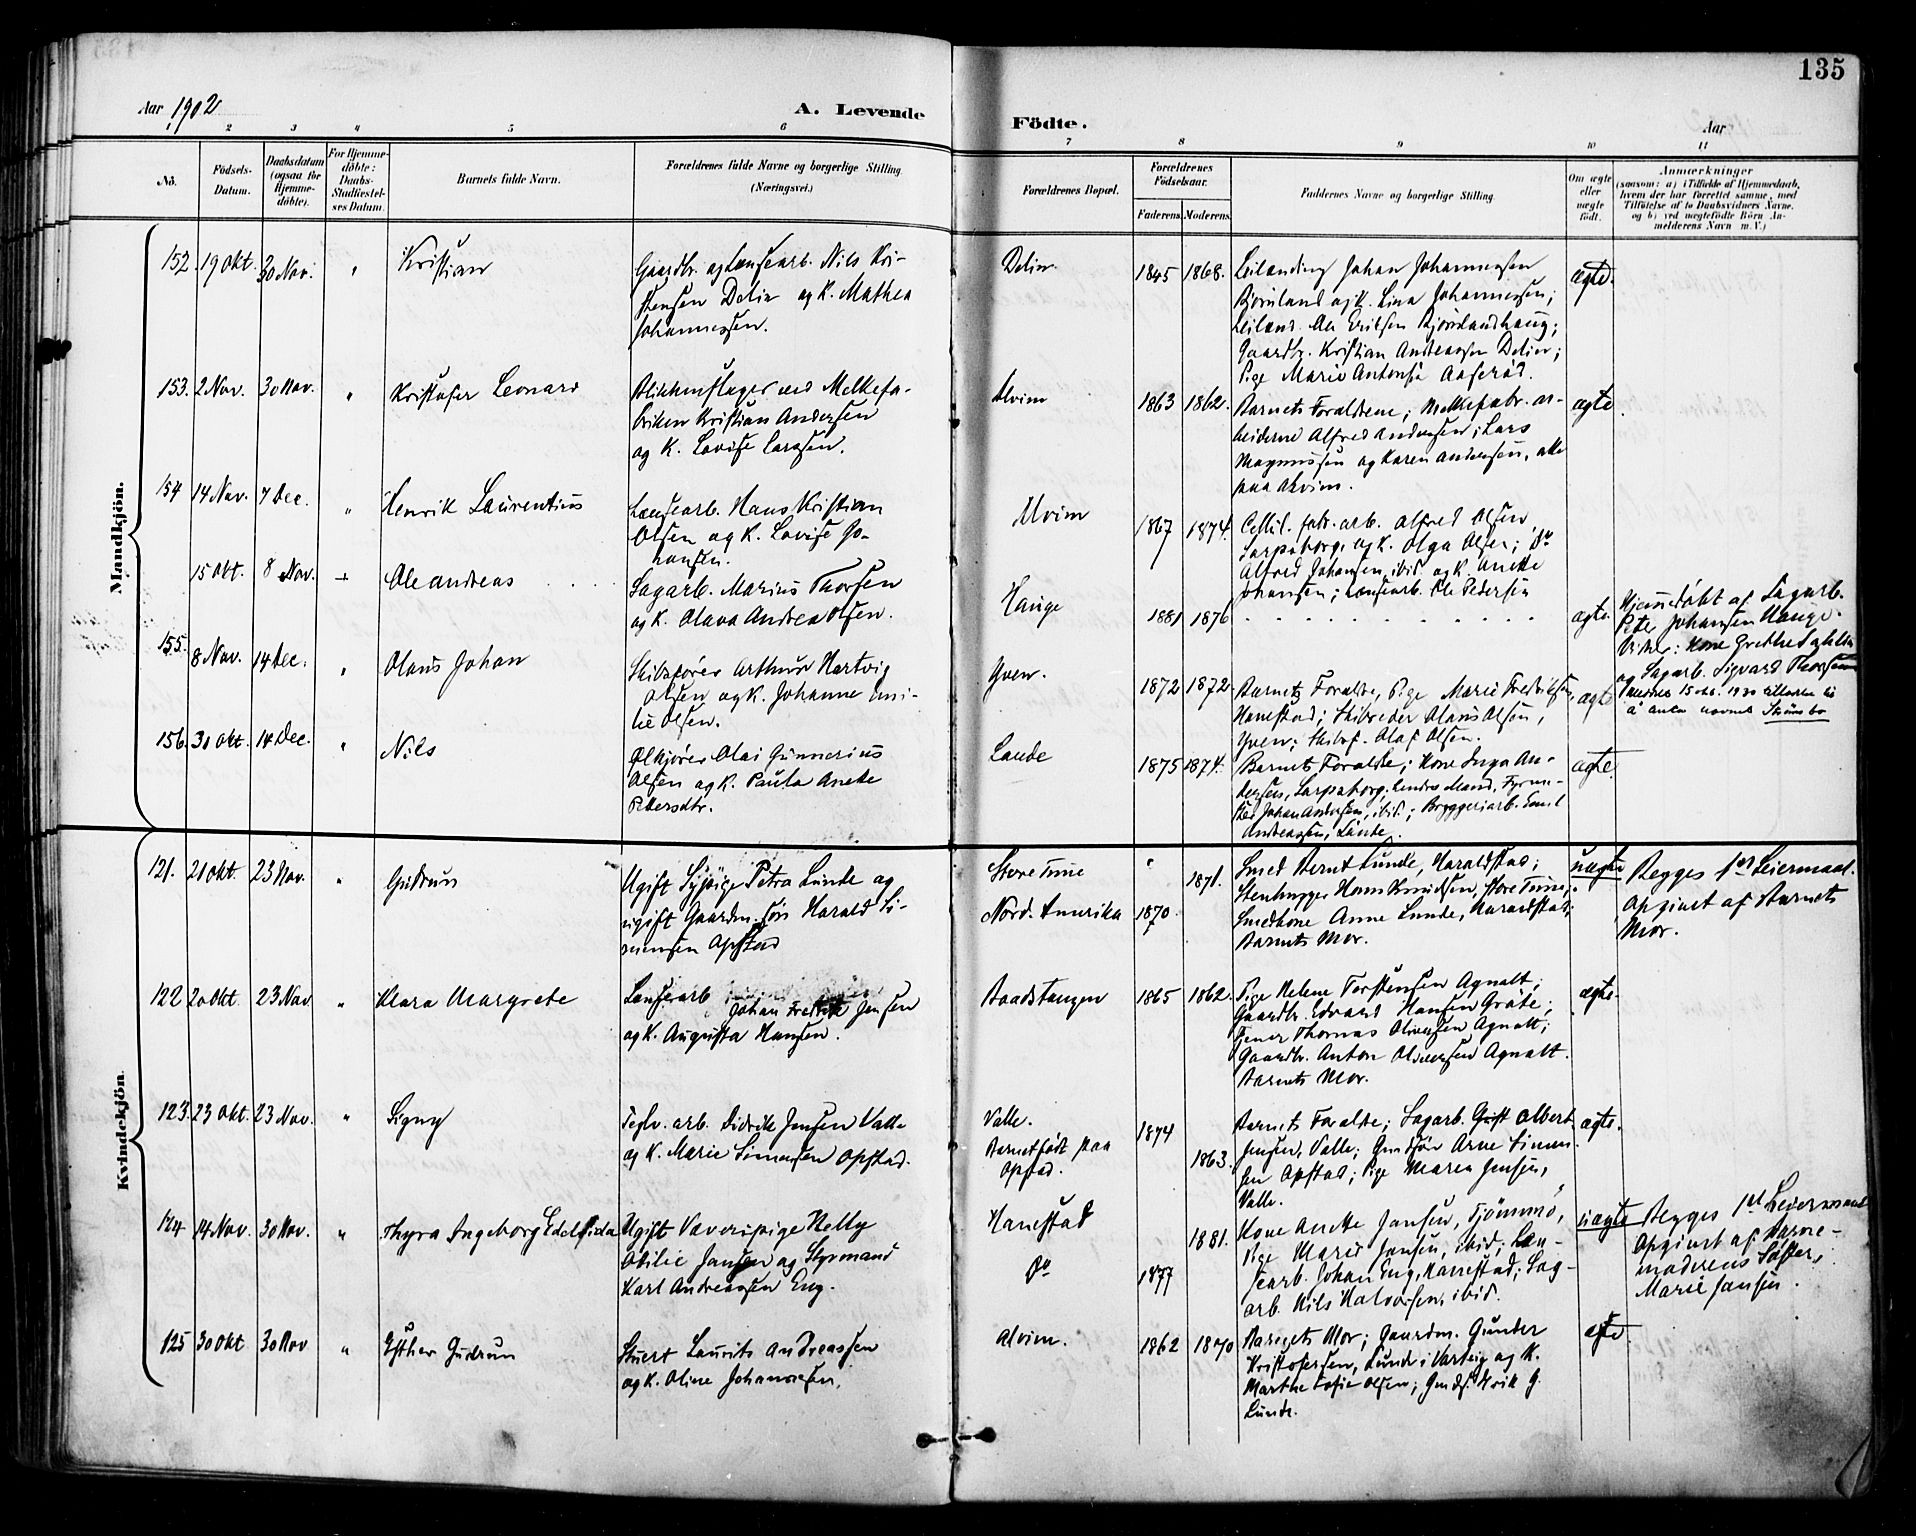 135
Aar 1902
A. Levende
Födte.
Aar
2 3 4 5 6 7 8 9 10 11
No.
Födsels-Datum.
Daabsdatum (ogsaa for Hjemme-döbte).
For Hjemme-döbte: Daabs-Stadfæstel-ses Datum.
Barnets fulde Navn.
Forældrenes fulde Navne og borgerlige Stilling (Næringsvei.)
Forældrenes Bopæl.
Forældrenes Födselsaar.
Faderens. Moderens.
Faddernes Navne og borgerlige Stilling.
Om ægte eller uægte födt.
Anmærkninger
(saasom: a) i Tilfælde af Hjemmedaab, hvem der har forrettet samme, med Tilföielse af to Daabsvidners Navne, og b) ved uægtefödte Börn An-melderens Navn m. V.)
Mandkjön.
152. 19 Okt. 30 Nov. " Kristian
Gaardbr. og Lænsearb. Nils Kri-
stensen Delin og K. Mathea
Johannessen.
Delin. 1845 1868.
Leilænding Johan Johannessen
Bjørnland og K. Lina Johannessen;
Leilænd. Ole Eriksen Bjørnlandhaug;
Gaardbr. Kristian Andreassen Delin;
Pige Marie Antonsen
ægte.
153. 2 Nov. 30 Nov. " Kristofer Leonard
Blikkenslager ved Melkefa-
briken Kristian Andersen
og K. Lovise Larssen.
Alvim 1863 1862.
Barnets Forældrene; Melkefabr. ar-
beiderne Alfred Andersen; Lars
Magnussen og Karen Andersen, alle
paa Alvim.
ægte
154 14 Nov. 7 Dec. " Henrik Laurentius
Lænsearb. Hans Kristian
Olsen og K. Lovise Jo-
hansen.
Alvim 1867 1874.
Cellul. fabr. arb. Alfred Olsen,
Sarpsborg og K. Olga Olsen; Do
Alfred Johansen, ibid og K. Anette
Johansen; Lænsearb. Ole Pedersen
15 Okt. 8 Nov. + Ole Andreas
Sagarb. Marius Thorsen
og K. Olava Andrea Olsen.
Hauge 1881 1876
ægte.
Hjemmedøbt af Sagarb.
Peter Johansen Hauge.
Vidner: Kone Grethe
og Sagarb. Sigvard Thorsen
155. 8 Nov. 14 Dec. " Olaus Johan
Skibsfører Arthur Hartvig
Olsen og K. Johanne Emi-
lie Olsen.
Yven. 1872 1872
Barnets Forældre, Pige Marie Fredriksen,
Hannestad; Skibreder Olaus Olsen,
Yven; Skibsf. Olaf Olsen.
ægte
15 okt. 1930 tilladen til
å anta navnet Strømsbo
156. 30 Okt. 14 Dec. " Nils
Ølkjører Olai Gunnerius
Olsen og K. Paula Anette
Pettersdtr.
Lande 1875 1874.
Barnets Forældre; Kone Inga An-
dersen, Sarpsborg; hendes Mand, Fyrmes-
ter Johan Andersen, ibid; Bryggeriarb. Emil
Andreassen, Lande.
ægte.
Kvindekjön.
121. 21 Okt. 23 Nov. " Gudrun
Ugift Sypige Petra Lunde og
ugift Gaardm. søn Harald Si-
mensen Opstad
Store Tune
Nord. Amerika 1870. 1871.
Smed Bernt Lunde, Haraldstad;
Stenhugger Hans Knudsen, Store Tune;
Smedkone Anne Lunde, Haraldstad;
Barnets Mor.
uægte
Begges 1ste Leiermaal.
Opgivet af Barnets
Mor.
122 20 Okt. 23 Nov " Klara Margrete
Lænsearb Johan Fredrik Jensen
og K. Augusta Hansen.
Baadstangen 1865 1862.
Pige Helene Torstensen Agnalt;
Gaardbr. Edvard Hansen Grate;
Tjener Thomas Oliversen Agnalt;
Gaardbr. Anton Oliversen Agnalt.
Barnets Mor.
ægte.
123. 23 Okt. 23 Nov. " Signy
Teglv. arb. Didrik Jensen Valle
og K. Marie Simensen Opstad.
Valle.
Barnet født paa
Opstad. 1874 1863.
Barnets Forældre; Sagarb. Gust Albert
Jensen, Valle; Gmdsøn Arne Simen-
sen Opstad; Pige Maren Jensen,
Valle.
ægte.
124 14 Nov. 30 Nov. " Thyra Ingeborg Edelfrida
Ugift Væveripige Helly
Otilie Jansen og Styrmand
Karl Andreassen Eng.
Hannestad
Do 1877 1881.
Kone Anette Jansen, Tjømmø,
Pige Marie Jansen, ibid; Læn-
searb. Johan Eng, Hannestad; Sag-
arb. Nils Halvorsen, ibid.
uægte
Begges 1ste Leiermaal
Opgivet af Barne-
moderens Søster,
Marie Jansen.
125 30 Okt 30 Nov " Esther Gudrun
Stuert Laurits Andreassen
og K. Oline Johannesen.
Alvim. 1862 1870
Barnets Mor; Gaardm. Gunder
Kristofersen, Lunde i Varteig og K.
Marthe Sofie Olsen; Gmds. Hvik G.
Lunde.
ægte.